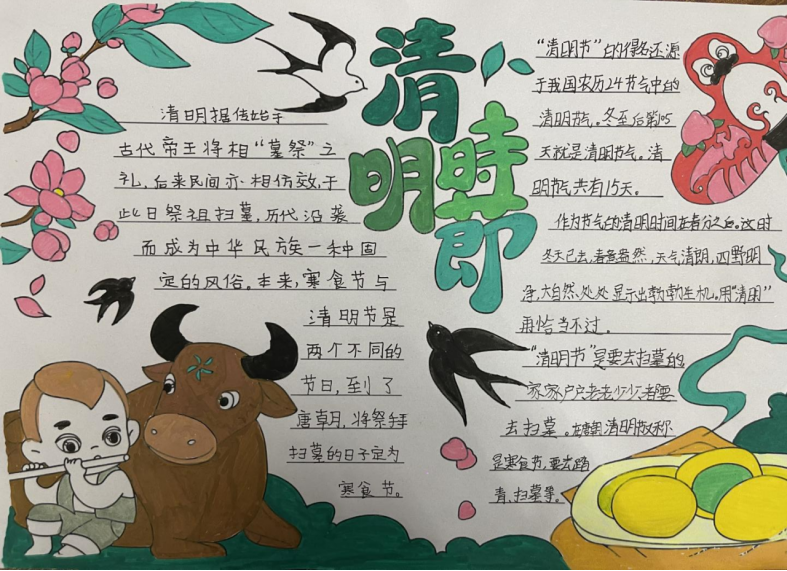 清明時節
清明据传始于
古代帝王将相“墓祭”之
礼，后来民间亦相仿效，于
此日祭祖扫墓，历代沿袭
而成为中华民族一种固
定的风俗。本来，寒食节与
清明节是
两个不同的
节日，到了
唐朝，将祭拜
扫墓的日子定为
寒食节。
“清明节”的得名还源
于我国农历24节气中的
清明节气。冬至后第105
天就是清明节气。清
明节气共有15天。
作为节气的清明时间在春分之后。这时
冬天已去，春意盎然，天气清朗，四野明
净，大自然处处显示出勃勃生机。用“清明”
再恰当不过。
“清明节”是要去扫墓的
家家户户老老少少都要
去扫墓。清明又称
是寒食节，要去踏
青、扫墓等。